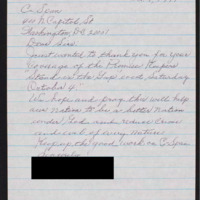 C-Span
400 N Capitol St
Washington DC 20001
Dear Sirs
Just wanted to thank you for your
coverage of the Promise Keepers
Stand in the Gap rally Saturday
October 4.
We hope and pray this will help
our nation to be a better nation
under God and reduce crime
and evil of every nature
Keep up the good work on C-Span